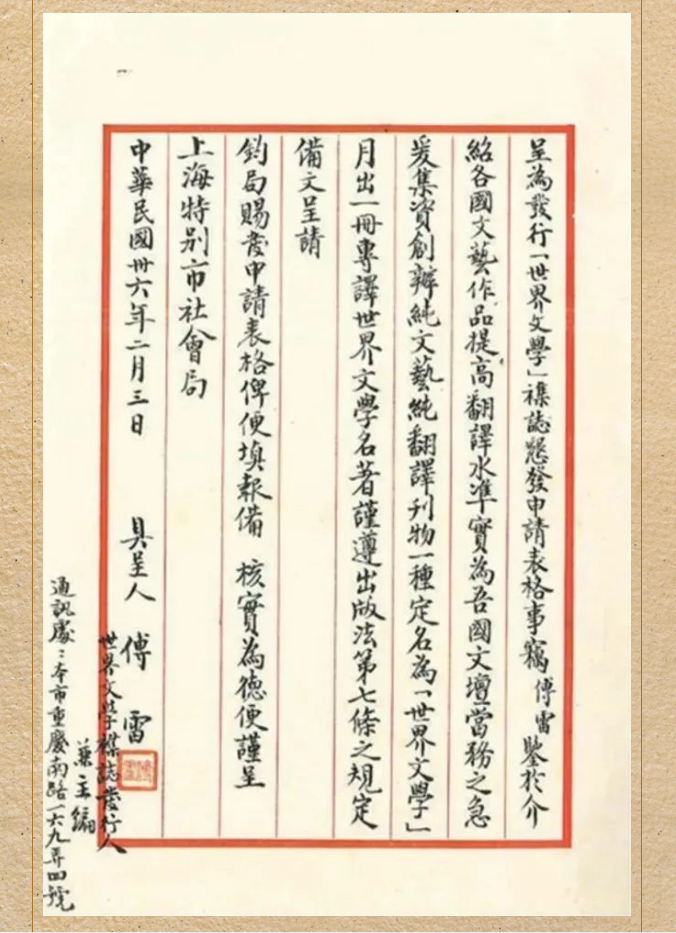 呈為發行「世界文學」襍誌懇發申請表格事竊傅雷鑒於介
紹各國文藝作品提高翻譯水準實為吾國文壇當務之急
爰集資創辦純文藝純翻譯刊物一種定名為「世界文學」
月出一冊專譯世界文學名著謹遵出版法第七條之規定
備文呈請
鈞局賜發申請表格俾便填報備 核實為德便謹呈
上海特别市社會局
中華民國卅六年二月三日 具呈人 傅雷
世界文學襍誌發行人
兼主編
通訊處：本市重慶南路一六九弄四號